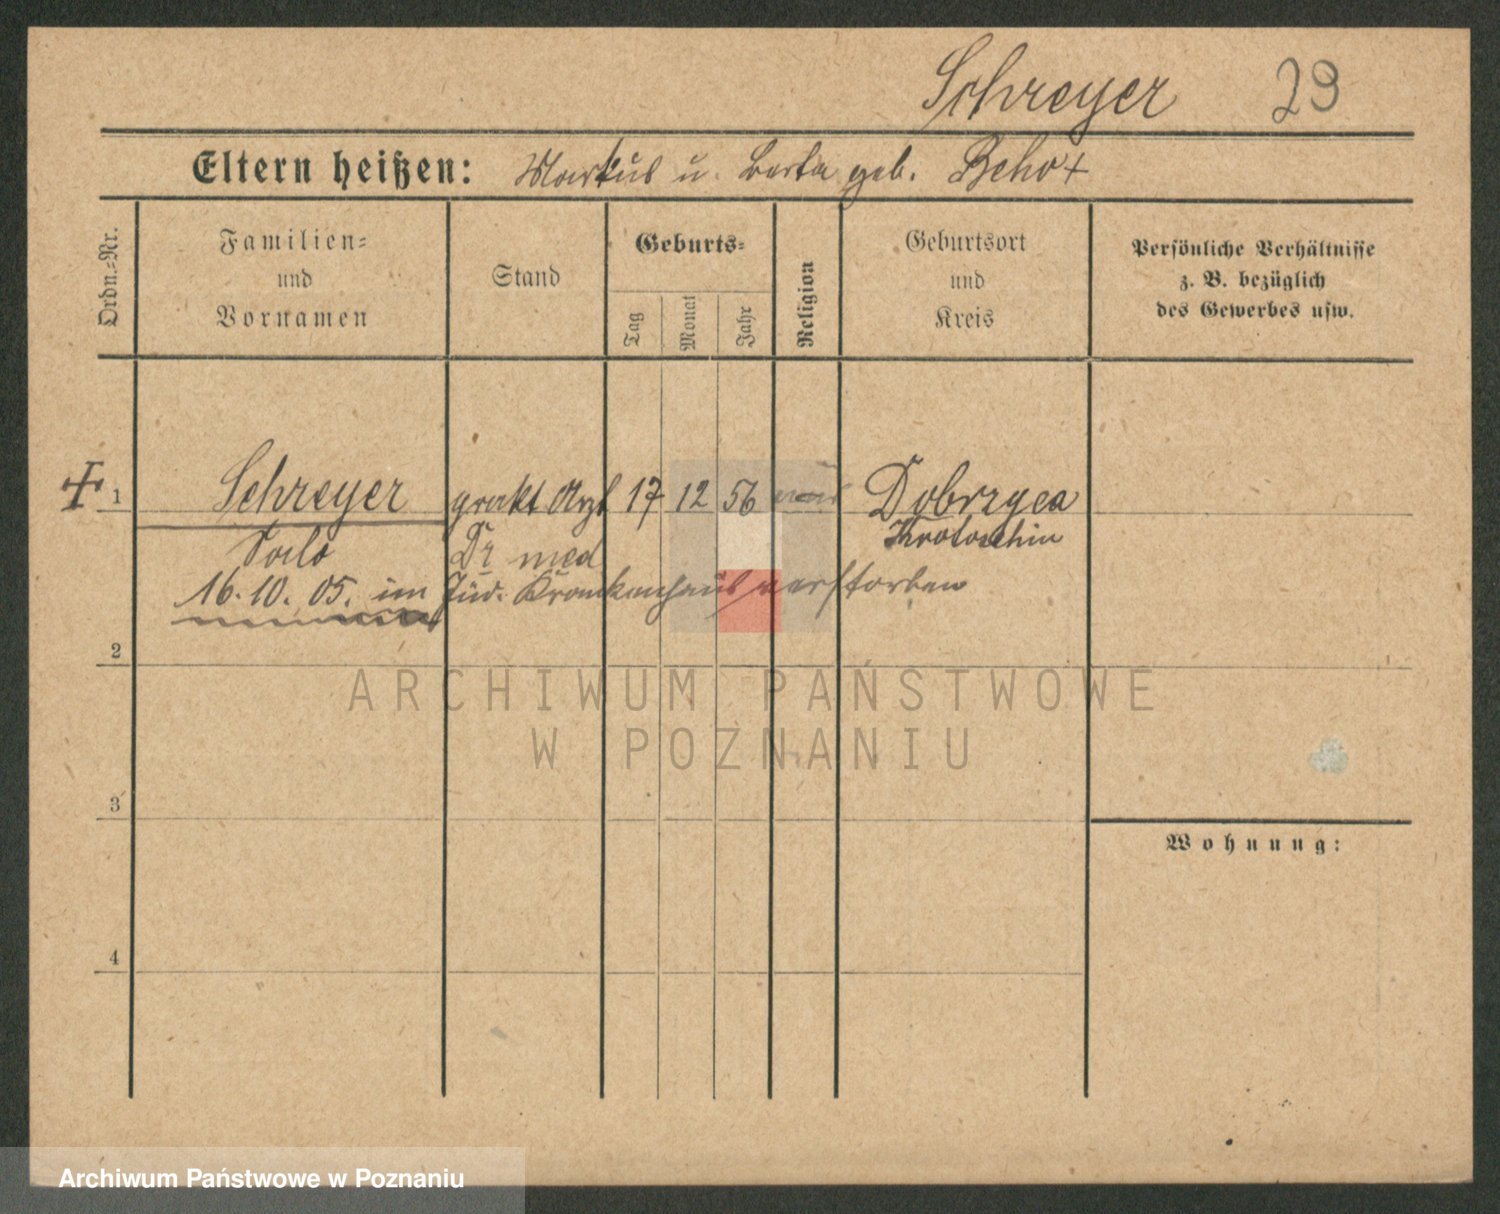 Schreyer 29
Eltern heißen: Markus u. Berta geb. Beho+
Ordn.=Nr.
Familien=
und
Vornamen
Stand
Geburts=
Tag
Monat
Jahr
Religion
Geburtsort
und
Kreis
Persönliche Verhältnisse
z. B. bezüglich
des Gewerbes usw.
1 Schreyer prakt Arzt 17 12 56 Dobrzyca
Krotoschin
Salo Dr med
16.10.05. im Jüd. Krankenhaus verstorben
2
3
4
Wohnung:
ARCHIWUM PAŃSTWOWE
W POZNANIU
Archiwum Państwowe w Poznaniu